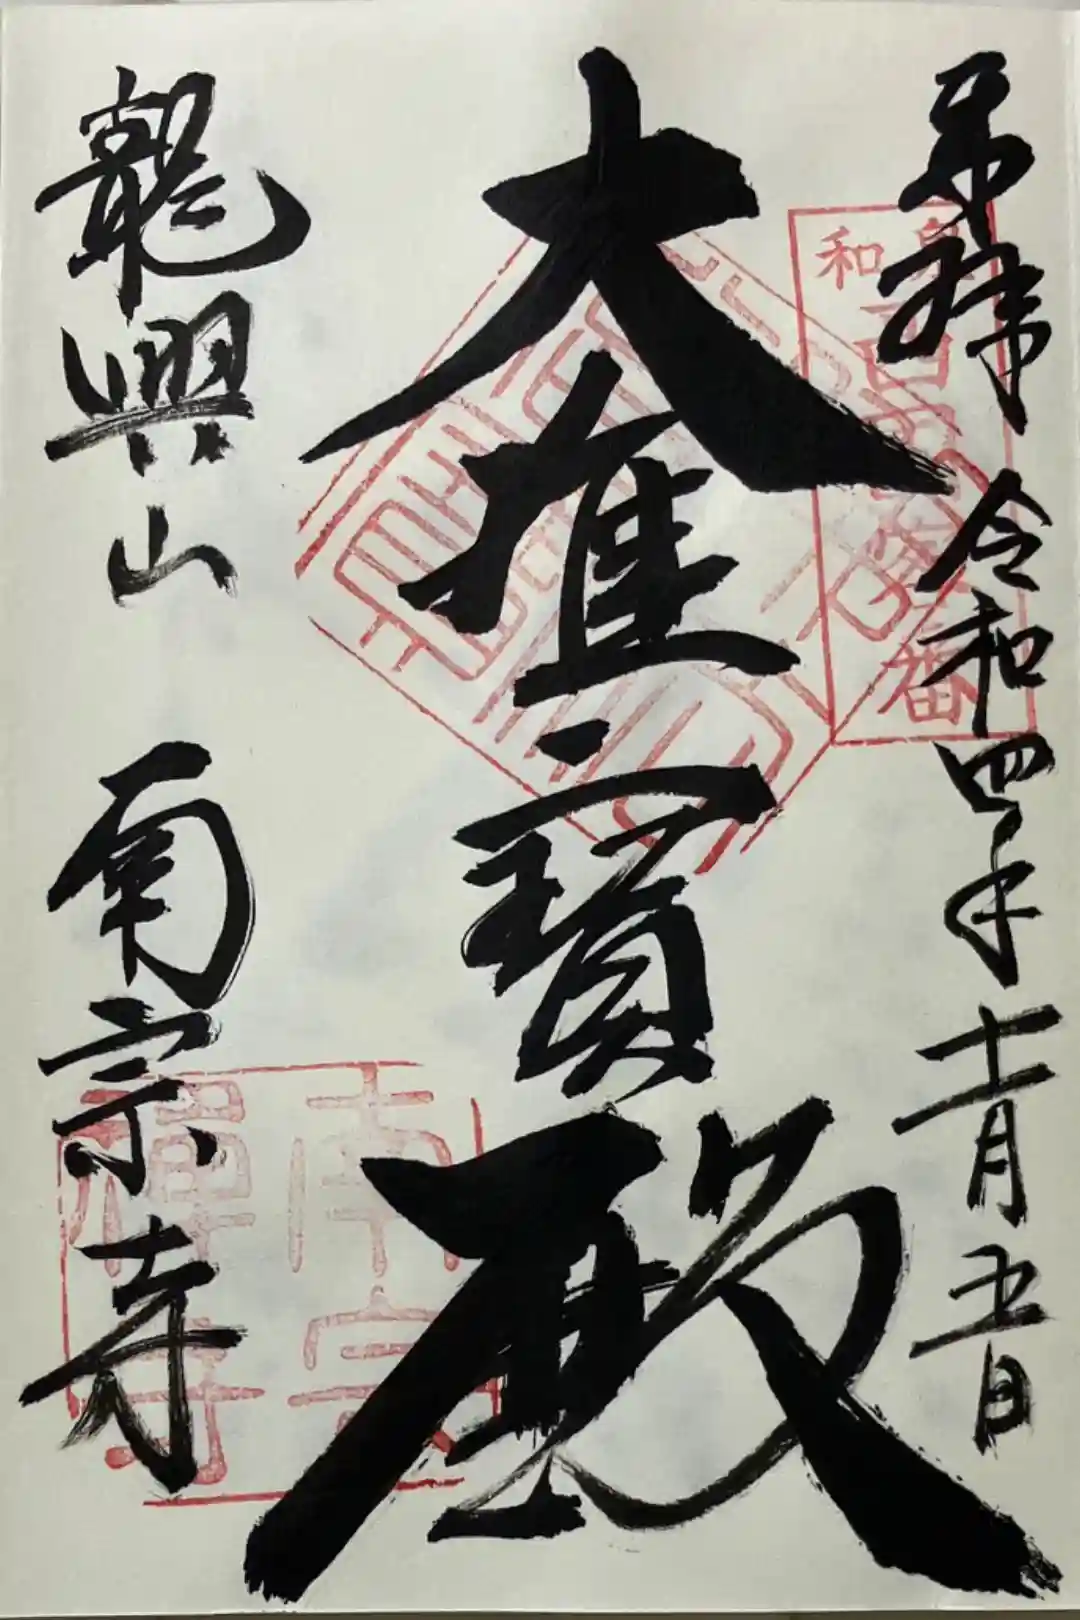 奉拝 令和四年十一月五日
大雄寶殿
龍興山 南宗寺
南宗
禅寺